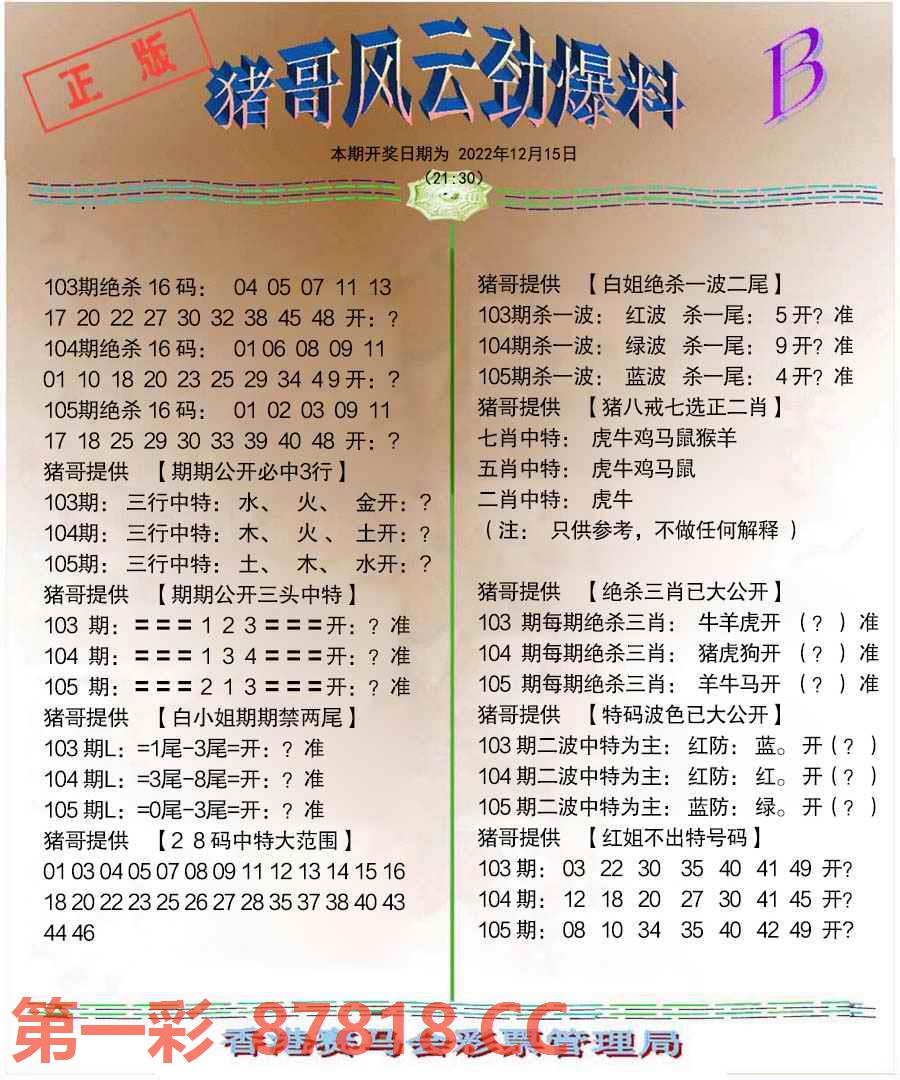 正版
猪哥风云劲爆料
B
本期开奖日期为 2022年12月15日
(21:30)
103期绝杀16码： 04 05 07 11 13
17 20 22 27 30 32 38 45 48 开：?
104期绝杀16码： 01 06 08 09 11
01 10 18 20 23 25 29 34 4 9 开：?
105期绝杀16码： 01 02 03 09 11
17 18 25 29 30 33 39 40 48 开：?
猪哥提供 【期期公开必中3行】
103期：三行中特：水、 火、 金开：?
104期：三行中特：木、 火、 土开：?
105期：三行中特：土、 木、 水开：?
猪哥提供 【期期公开三头中特】
103 期：===１２３===开：? 准
104 期：===１３４===开：? 准
105 期：===２１３===开：? 准
猪哥提供 【白小姐期期禁两尾】
103期L：=1尾-3尾=开：? 准
104期L：=3尾-8尾=开：? 准
105期L：=0尾-3尾=开：? 准
猪哥提供 【２８码中特大范围】
01 03 04 05 07 08 09 11 12 13 14 15 16
18 20 22 23 25 26 27 28 35 37 38 40 43
44 46
猪哥提供 【白姐绝杀一波二尾】
103期杀一波： 红波 杀一尾： 5开? 准
104期杀一波： 绿波 杀一尾： 9开? 准
105期杀一波： 蓝波 杀一尾： 4开? 准
猪哥提供 【猪八戒七选正二肖】
七肖中特： 虎牛鸡马鼠猴羊
五肖中特： 虎牛鸡马鼠
二肖中特： 虎牛
（注： 只供参考，不做任何解释 ）
猪哥提供 【绝杀三肖已大公开】
103 期每期绝杀三肖： 牛羊虎开 （? ）准
104 期每期绝杀三肖： 猪虎狗开 （? ）准
105 期每期绝杀三肖： 羊牛马开 （? ）准
猪哥提供 【特码波色已大公开】
103期二波中特为主：红防：蓝。开(? )
104期二波中特为主：红防：红。开(? )
105期二波中特为主：蓝防：绿。开(? )
猪哥提供 【红姐不出特号码】
103期： 03 22 30 35 40 41 49 开?
104期： 12 18 20 27 30 41 45 开?
105期： 08 10 34 35 40 42 49 开?
第一彩 87818.CC
香港赛马会彩票管理局